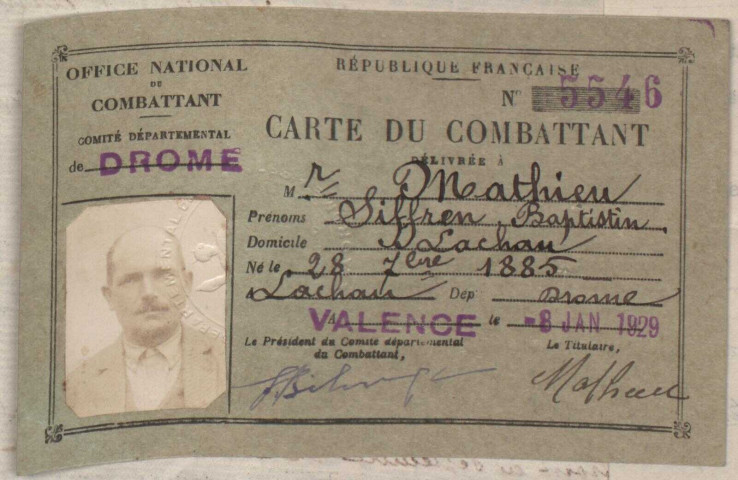 OFFICE NATIONAL
DU
COMBATTANT
COMITÉ DÉPARTEMENTAL
de DROME
RÉPUBLIQUE FRANÇAISE
N° 5546
CARTE DU COMBATTANT
DÉLIVRÉE À
M r Mathieu
Prénoms Siffren Baptistin
Domicile à Lachau
Né le 28 7bre 1885
à Lachau Dép Drome
A VALENCE le -8 JAN 1929
Le Président du Comité départemental
du Combattant,
Le Titulaire,
Mathieu